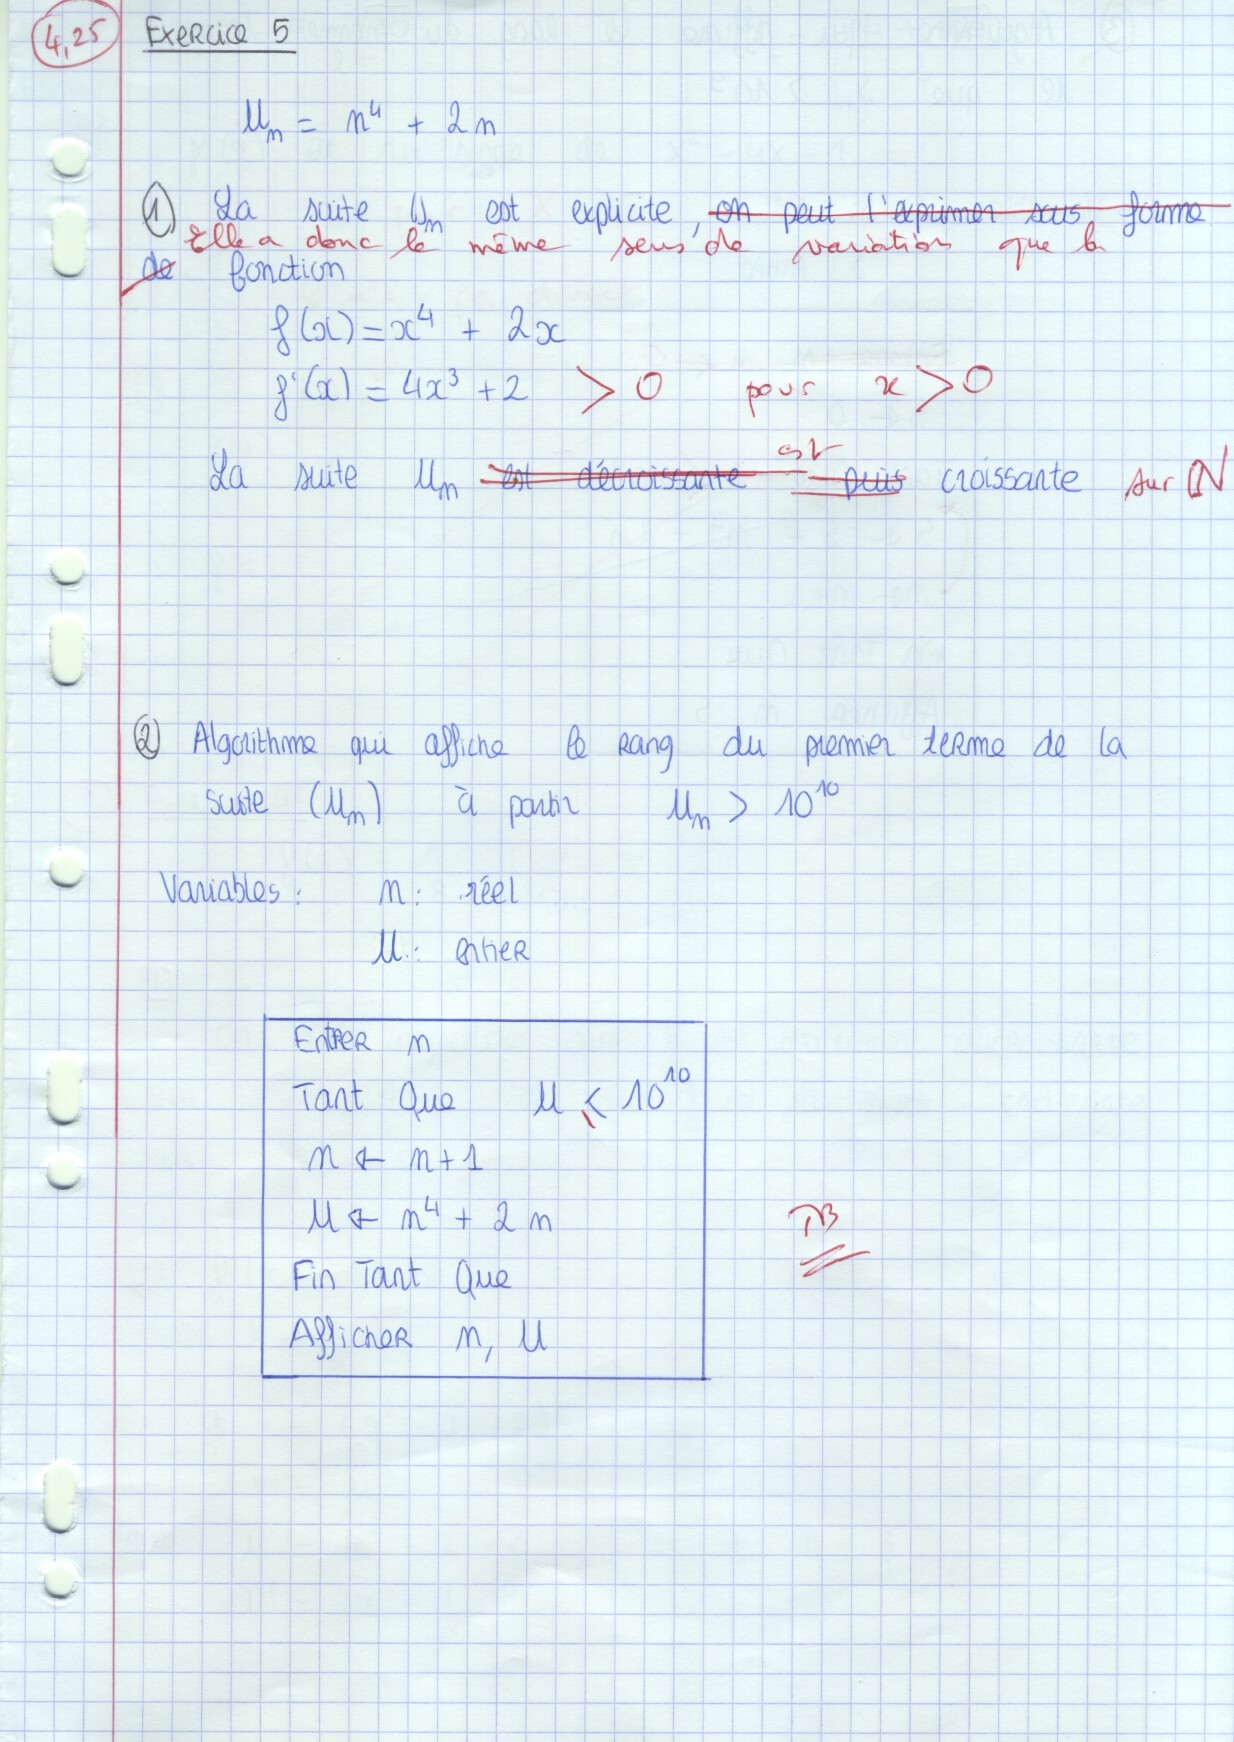 4,25 Exercice 5
Un = n⁴ + 2n
① La suite Un est explicite, on peut l'exprimer sous forme
Elle a donc le même sens de variation que la
de fonction
f(x) = x⁴ + 2x
f'(x) = 4x³ + 2 > 0 pour x > 0
est
La suite Un est décroissante puis croissante sur ℕ
② Algorithme qui affiche le rang du premier terme de la
suite (Un) à partir Un > 10¹⁰
Variables : n : réel
U : entier
Entrer n
Tant Que U ⩽ 10¹⁰
n ← n+1
U ← n⁴ + 2n
Fin Tant Que
Afficher n, U
TB